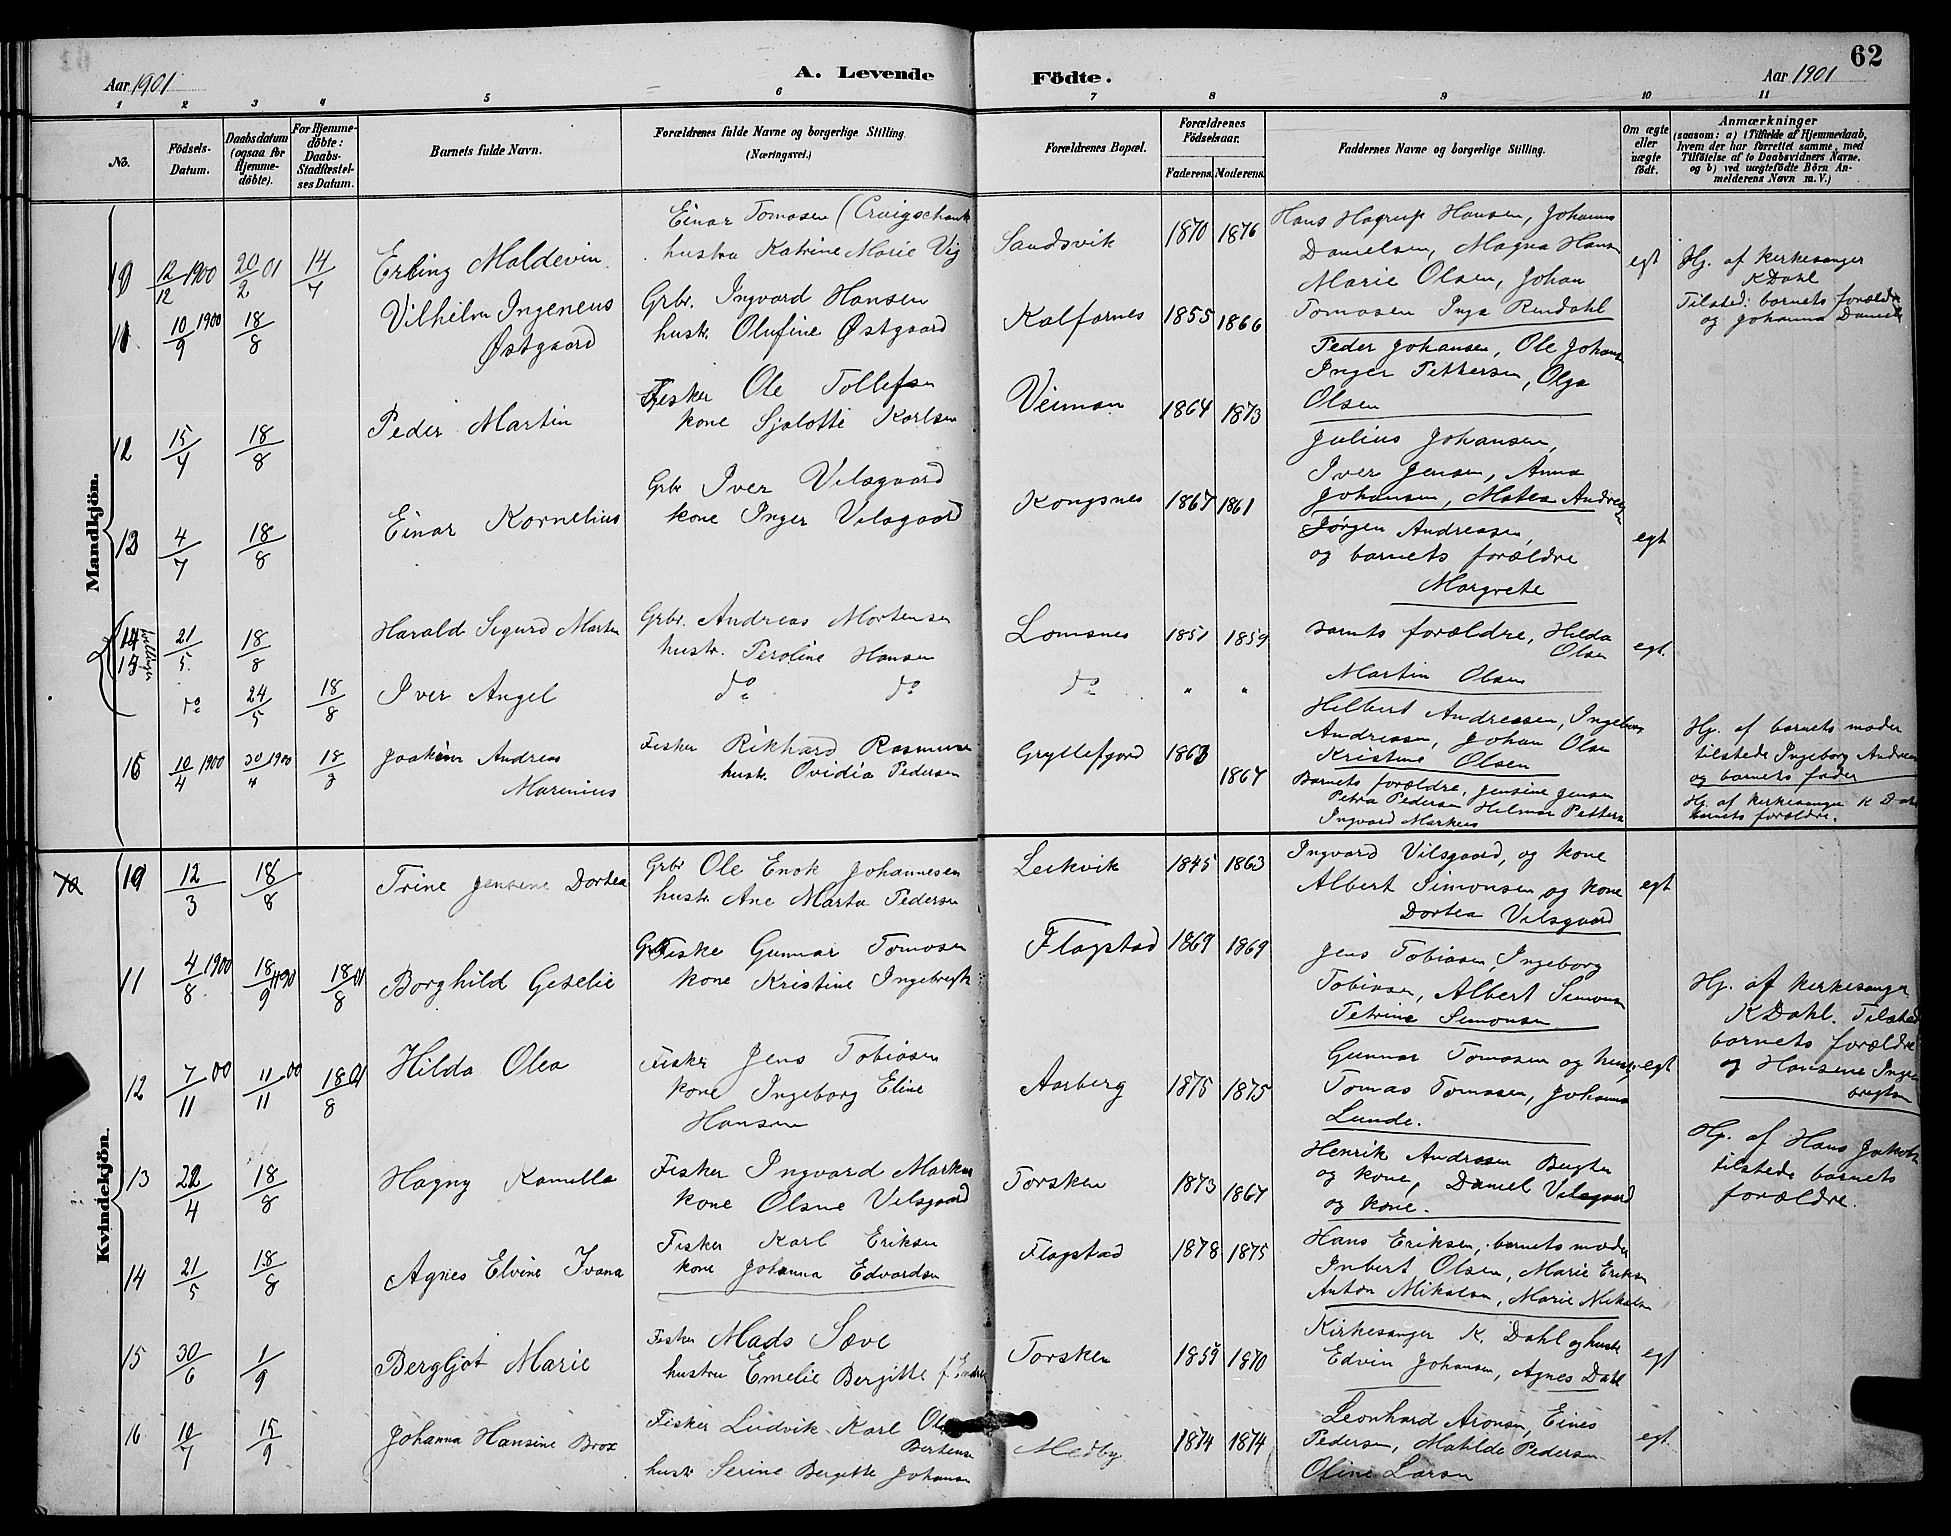 62
Aar 1901
A. Levende Födte.
Aar 1901
1 2 3 4 5 6 7 8 9 10 11
No.
Födsels-Datum.
Daabsdatum (ogsaa for Hjemme-döbte).
For Hjemme-döbte: Daabs-Stadfæstel-ses Datum.
Barnets fulde Navn.
Forældrenes fulde Navne og borgerlige Stilling.
(Næringsvei.)
Forældrenes Bopæl.
Forældrenes Födselsaar.
Faderens. Moderens.
Faddernes Navne og borgerlige Stilling.
Om ægte eller uægte født.
Anmærkninger
(saasom: a) i Tilfælde af Hjemmedaab,
hvem der har forrettet samme, med
Tilföielse af to Daabsvidners Navne.
og b) ved uægtefödte Börn An-
melderens Navn m. V.)
Mandkjön.
10 12/12 1900 20/2 01 14/7 Erling Maldevin
Einar Tomasen
hustru Katrine Marie Vig
Sandsvik 1870 1876
Hans Hagrup Hansen, Johanna
Danielsen, Magna Hansen
Marie Olsen, Johan
Tomasen Inga Rendahl
egt
Hj. af kerkesanger
K Dahl
Tilsted: barnets forældre
og Johanna Daniels
11 10/9 1900 18/8 Vilhelm Ingeneus
Østgaard
Grbr. Ingvard Hansen
hustr. Olufine Østgaard
Kalfarnes 1855 1866
Peder Johansen, Ole Johans
Inger Pettersen, Olga
Olsen
12 15/4 18/8 Peder Martin
Fisker Ole Tollefsen
kone Sjalotte Karlsen
Veiman 1864 1873
Julius Johansen,
Iver Jensen, Anna
Johansen, Matea Andreas
13 4/7 18/8 Einar Kornelius
Grbr Iver Vilsgaard
kone Inger Vilsgaard
Kongsnes 1867 1861
Jørgen Andreasen,
og barnets forældre
Margrete
egt
14 tvillinger 21/5 18/8 Harald Sigurd Martin
Grbr. Andreas Mortensen
hustr. Peroline Hansen
Lomsnes 1851 1859
barnets forældre, Hilda
Olsen
Martin Olsen
egt.
15 do 24/5 18/8 Iver Angel
do do
do " "
Hilbert Andreasen, Ingeborg
Andreasen, Johan Olsen
Kristine Olsen
Hj. af barnets moder
tilstede Ingeborg Andreas
og barnets fader
16 10/4 1900 30/4 1900 18/8 Joakim Andreas
Marinius
Fisker Rikhard Rasmusen
hustr. Ovidia Pedersen
Gryllefjord 1863 1867
Barnets forældre, Jensine Jensen
Petra Pedersen Helmar Petters
Ingvard Markus
Hj. af kerkesanger K Dahl
barnets forældre.
Kvindekjön.
10 12/3 18/8 Trine Jensine Dortea
Grbr Ole Enok Johannesen
hustr. Ane Marta Pedersen
Leikvik 1845 1863
Ingvard Vilsgaard, og kone
Albert Simonsen og kone
Dortea Vilsgaard
egt
11 4/8 1900 18/9 1900 18/8 01 Borghild Geselie
Fiske Gunnar Tomasen
kone Kristine Ingebregt
Flagstad 1869 1869
Jens Tobiasen, Ingeborg
Tobiasen, Albert Simonsen
Petrine Simonsen
Hj. af kerkesanger
K Dahl. Tilsted
barnets forældre
og Hansine Inge
bregtsen
12 7/11 00 11/11 00 18/8 01 Hilda Olea
Fisker Jens Tobiasen
kone Ingeborg Eline
Hansen
Aarberg 1875 1875
Gunnar Tomasen og hustr.
Tomas Tomasen, Johanna
Lunde.
egt
Hj. af Hans Jakobs
tilstede barnets
forældre.
13 22/4 18/8 Hagny Kamilla
Fisker Ingvard Markus
kone Olsne Vilsgaard
Torsken 1873 1867
Henrik Andreasen
og kone, Daniel Vilsgaard
og kone.
14 21/5 18/8 Agnes Elvine Ivana
Fisker Karl Eriksen
kone Johanna Edvardsen
Flagstad 1878 1875
Hans Eriksen, barnets moder
Inbert Olsen, Marie Eriksen
Anton Mikalsen, Marie Mikalsen
15 30/6 1/9 Bergljot Marie
Fisker Mads Sæve
hustru Emelie Bergitte
Torsken 1859 1870
Kirkesanger K. Dahl og hustr
Edvin Johansen, Agnes Dahl
egt
16 10/7 15/9 Johanna Hansine Brox
Fisker Ludvik Karl Ole
Bertens
hustr Serine Bergitte Johansen
Medby 1874 1874
Leonhard Aronsen, Eines
Pedersen, Matilde Pedersen
Oline Larsen
egt.